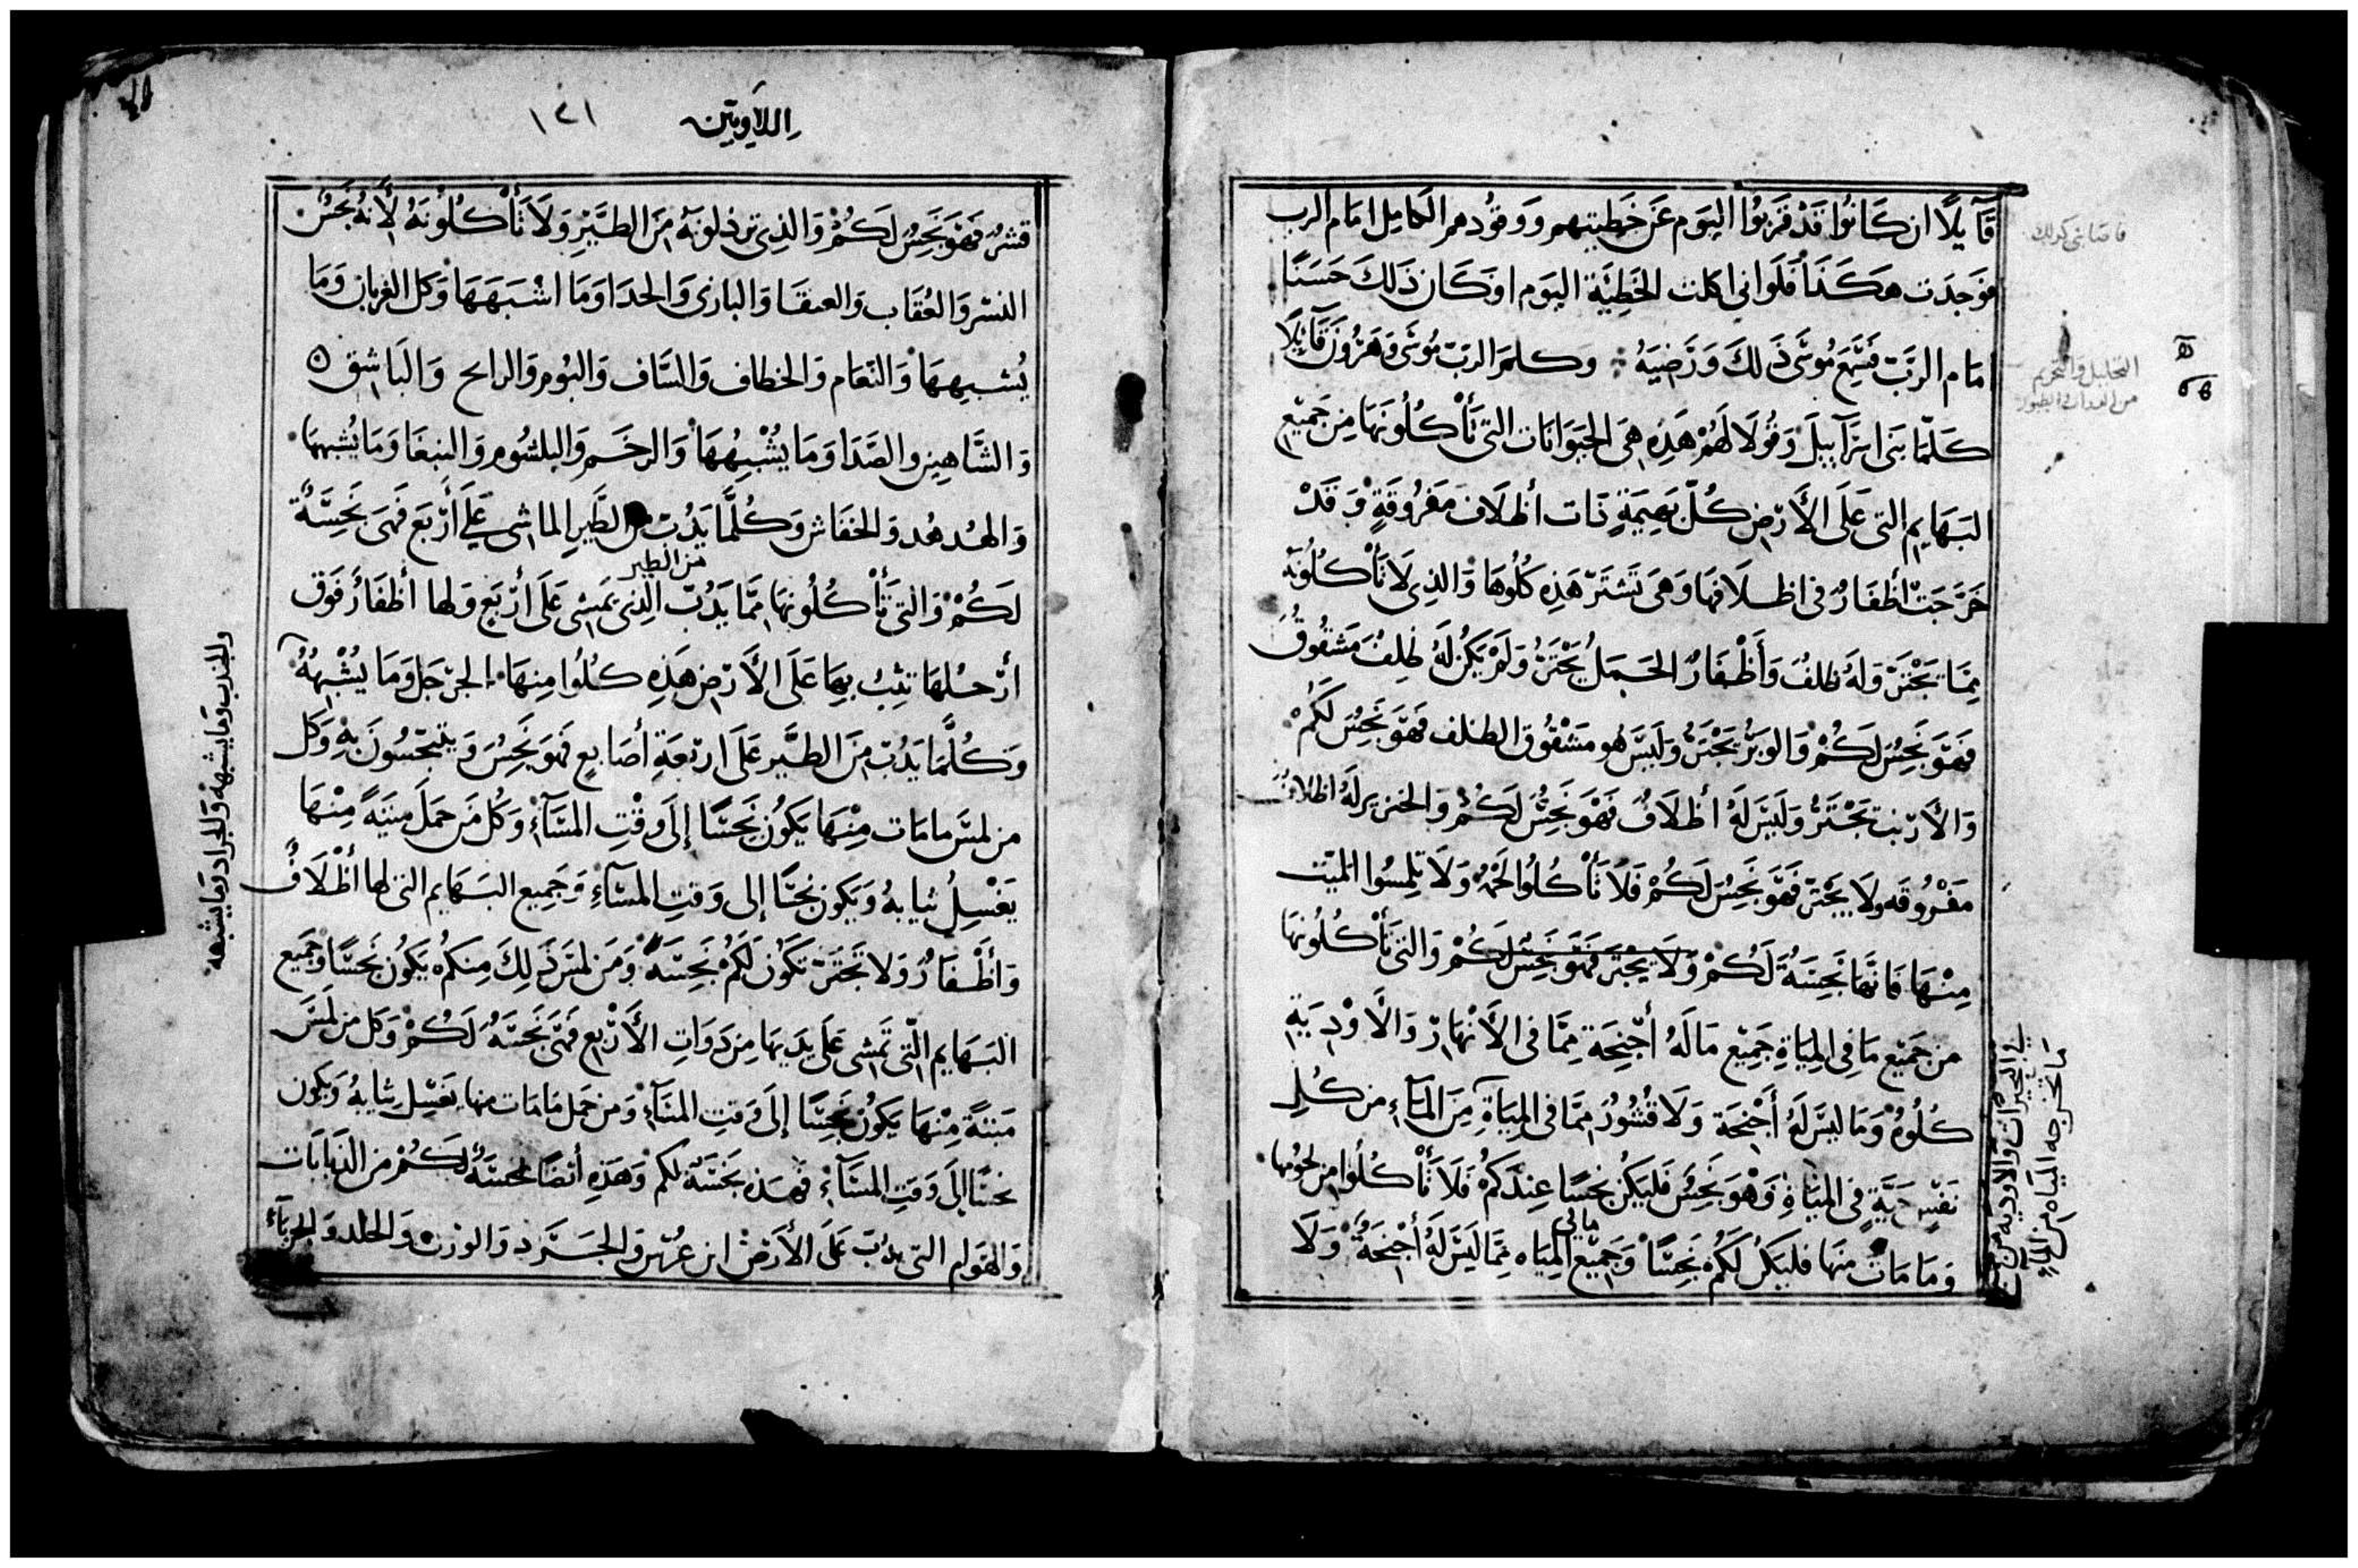 قَآيلًا ان كَانوُا قَدْ قَربوُا اليوَم عَن خَطِيتهم ووقوُدهم الكامِل امَام الرب
فوَجدَت هكَذَا فَلَو انى اكلت الخَطِيَّة اليوَم اوَ كَان ذَلكَ حَسَنًا
امَام الربَّ فسَمِعَ مُوسَى ذَلكَ وَرَضِيَهُ وكلمَ الربّ مُوسَى وَهَرُونَ قَآيلًا
كَلّمَا بَنى اسرَآييلَ وَقوُلَا لَهُمْ هَذِه هِىَ الحَيَوَانَات التى تَأْكُلوُنَهَا مِنْ جَميْع
البَهَايم التى عَلَى الأَرْض كُلّ بَهيمَةٍ ذَات أظلَاف مَفرُوقةٍ وَقَدْ
خَرَجَتْ أظفَارٌ فى اظلَافهَا وَهى تَشتَرّ هَذِه كُلُوهَا وَالذِى لَا تَأْكُلُونَهُ
مِمَّا تَجْتَرْ وَلَهُ ظلفُ وَأَظْفَارٌ الجَمَلُ يَجْتَرُّ وَلَمْ يَكُنْ لَهُ ظِلفٌ مَشقُوقٌ
فَهَوَ نَجِسٌ لَكُمْ وَالوَبْرُ يَجْتَرُّ وَلَيسَ هو مَشْقُوق الظلف فَهَوَ نَجِسٌ لَكُمْ
وَالأَرْنب تَجْتَرُّ وَلَيسَ لَهُ أظلَافٌ فَهْوَ نَجِسٌ لَكُمْ وَالخنزير لَهُ اظلافٌ
مَفْرُوقَه ولَا يَجْترّ فَهَوَ نَجِسٌ لَكُمْ فَلَا تَأْكُلُوا لَحْمَهُ وَلَا تلمِسُوا المَيّت
مِنْهَا فَانهَا نَجِسَةٌ لَكُمْ وَلَا يَجْتَر فَهَوَ نَجِسٌ لَكُمْ وَالتى تَأْكُلُونهَا
من جَميْع مَا فى المِيَاةِ جَمِيْع مَا لَهُ أجْنِحَة مِمَّا فى الأَنْهَارْ وَالَاوْدِيَةِ
كُلُوهُ وَمَا ليسَ لَهُ أَجْنِحَة وَلَا قُشُورٌ مِمَّا فى المِيَاةِ مِنَ المَآءِ من كُلِّ
نَفْسٍ حَيَّةٍ فى المِيَاةِ وَهْوَ نَجِسٌ فَليَكُن نجسًا عِندَكُمْ فَلَا تَأْكُلُوا من لحوُمها
وَمَا مَاتَ منهَا فليَكُن لَكُمْ نَجِسًا وَجَمِيْع المِيَاه مِمَّا لَيسَ لَهُ أَجْنِحَةٌ وَلَا
مالى
فى البحَيرَات وَالاودية من
مَا تخرجه الميَاه من
التحليل والتحريم
اللآويين
١٢١
قشر فَهَوَ نَجِسٌ لَكُمْ وَالذِى ترذلونَهُ مِنَ الطَيْرِ وَلَا تَأْكُلُوْنَهُ لأَنهُ نَجَسٌ
النسْر وَالعُقَاب وَالعنقَا وَالبازى وَالحدَا وَمَا اشْبَهَهَا وَكل الغربان وَمَا
يُشبِهِهَا وَالنعَام وَالخطاف وَالسَّاف وَالبوُم وَالرامح وَالبَاشق
وَالشَّاهين والصَّدَا وَمَا يُشْبِهُهَا وَالرخَم وَالبلشوُم وَالببغَا وَمَا يُشبهها
وَالهُدهُد وَالخفَاش وَكُلّمَا يَدُبّ مِن الطَيرِ الماشى عَلَى أَرْبَع فَهىَ نَجِسَةٌ
من الطير
لكُمْ وَالتى تَأْكُلُونهَا مِمَّا يَدُبّ الذِى يَمشى عَلَى أرْبَع وَلها أظفَارُ فَوَق
ارْجُلهَا تثِبُ بِهَا عَلَى الأَرْض هَذِهِ كُلُوا مِنهَا الجرْجَل وَمَا يُشْبِهُهُ
وَكُلَّمَا يَدُبّ مِنَ الطَيْر عَلَى ارْبَعَةِ أصَابِعٍ فَهَو نَجِسٌ وَيتنجّسُونَ بِهِ وَكل
من لمسَ ما مَات مِنْهَا يَكوُن نَجِسًا إِلَى وَقْتِ المسَآءِ وَكُل مَن حَمَلَ مَيتَهً مِنْهَا
يَغْسِلُ ثيابهُ وَيَكوُن نجسًا إلى وَقتِ المسَآءِ وَجَمِيع البَهَايم التى لها أظْلَافٌ
وَأظْفَارٌ وَلا تَجتَرّ تَكُون لَكُمْ نَجِسَهٌ وَمَن لمسَ ذَلِكَ مِنكمُ يَكُون نَجِسًا وَجَميع
البَهَايم التى تَمشى عَلَى يَدَيهَا مِن ذوَاتِ الأَرْبَع فَهىَ نَجِسَهٌ لَكُمْ وَكل من لمسَ
مَيتةً مِنْهَا يَكُوْن نَجِسًا إلَى وَقتِ المسَآءِ وَمن حَمل مَا مَات منها يَغسِل ثيابهُ وَيكون
نجسًا إلَى وَقتِ المسَآءِ فَهَذه نَجسَة لَكُم وَهَذِهِ أيْضًا نجسَةٌ لَكُمْ من الدَبابَات
وَالهَوَام التى تدبّ عَلَى الأَرْض ابن عرُس وَالجَرَد وَالورن وَالخلد وَالحِربَآء
وَالجندب وَمَا يشبههُ وَالجراد وَمَا يشبهه